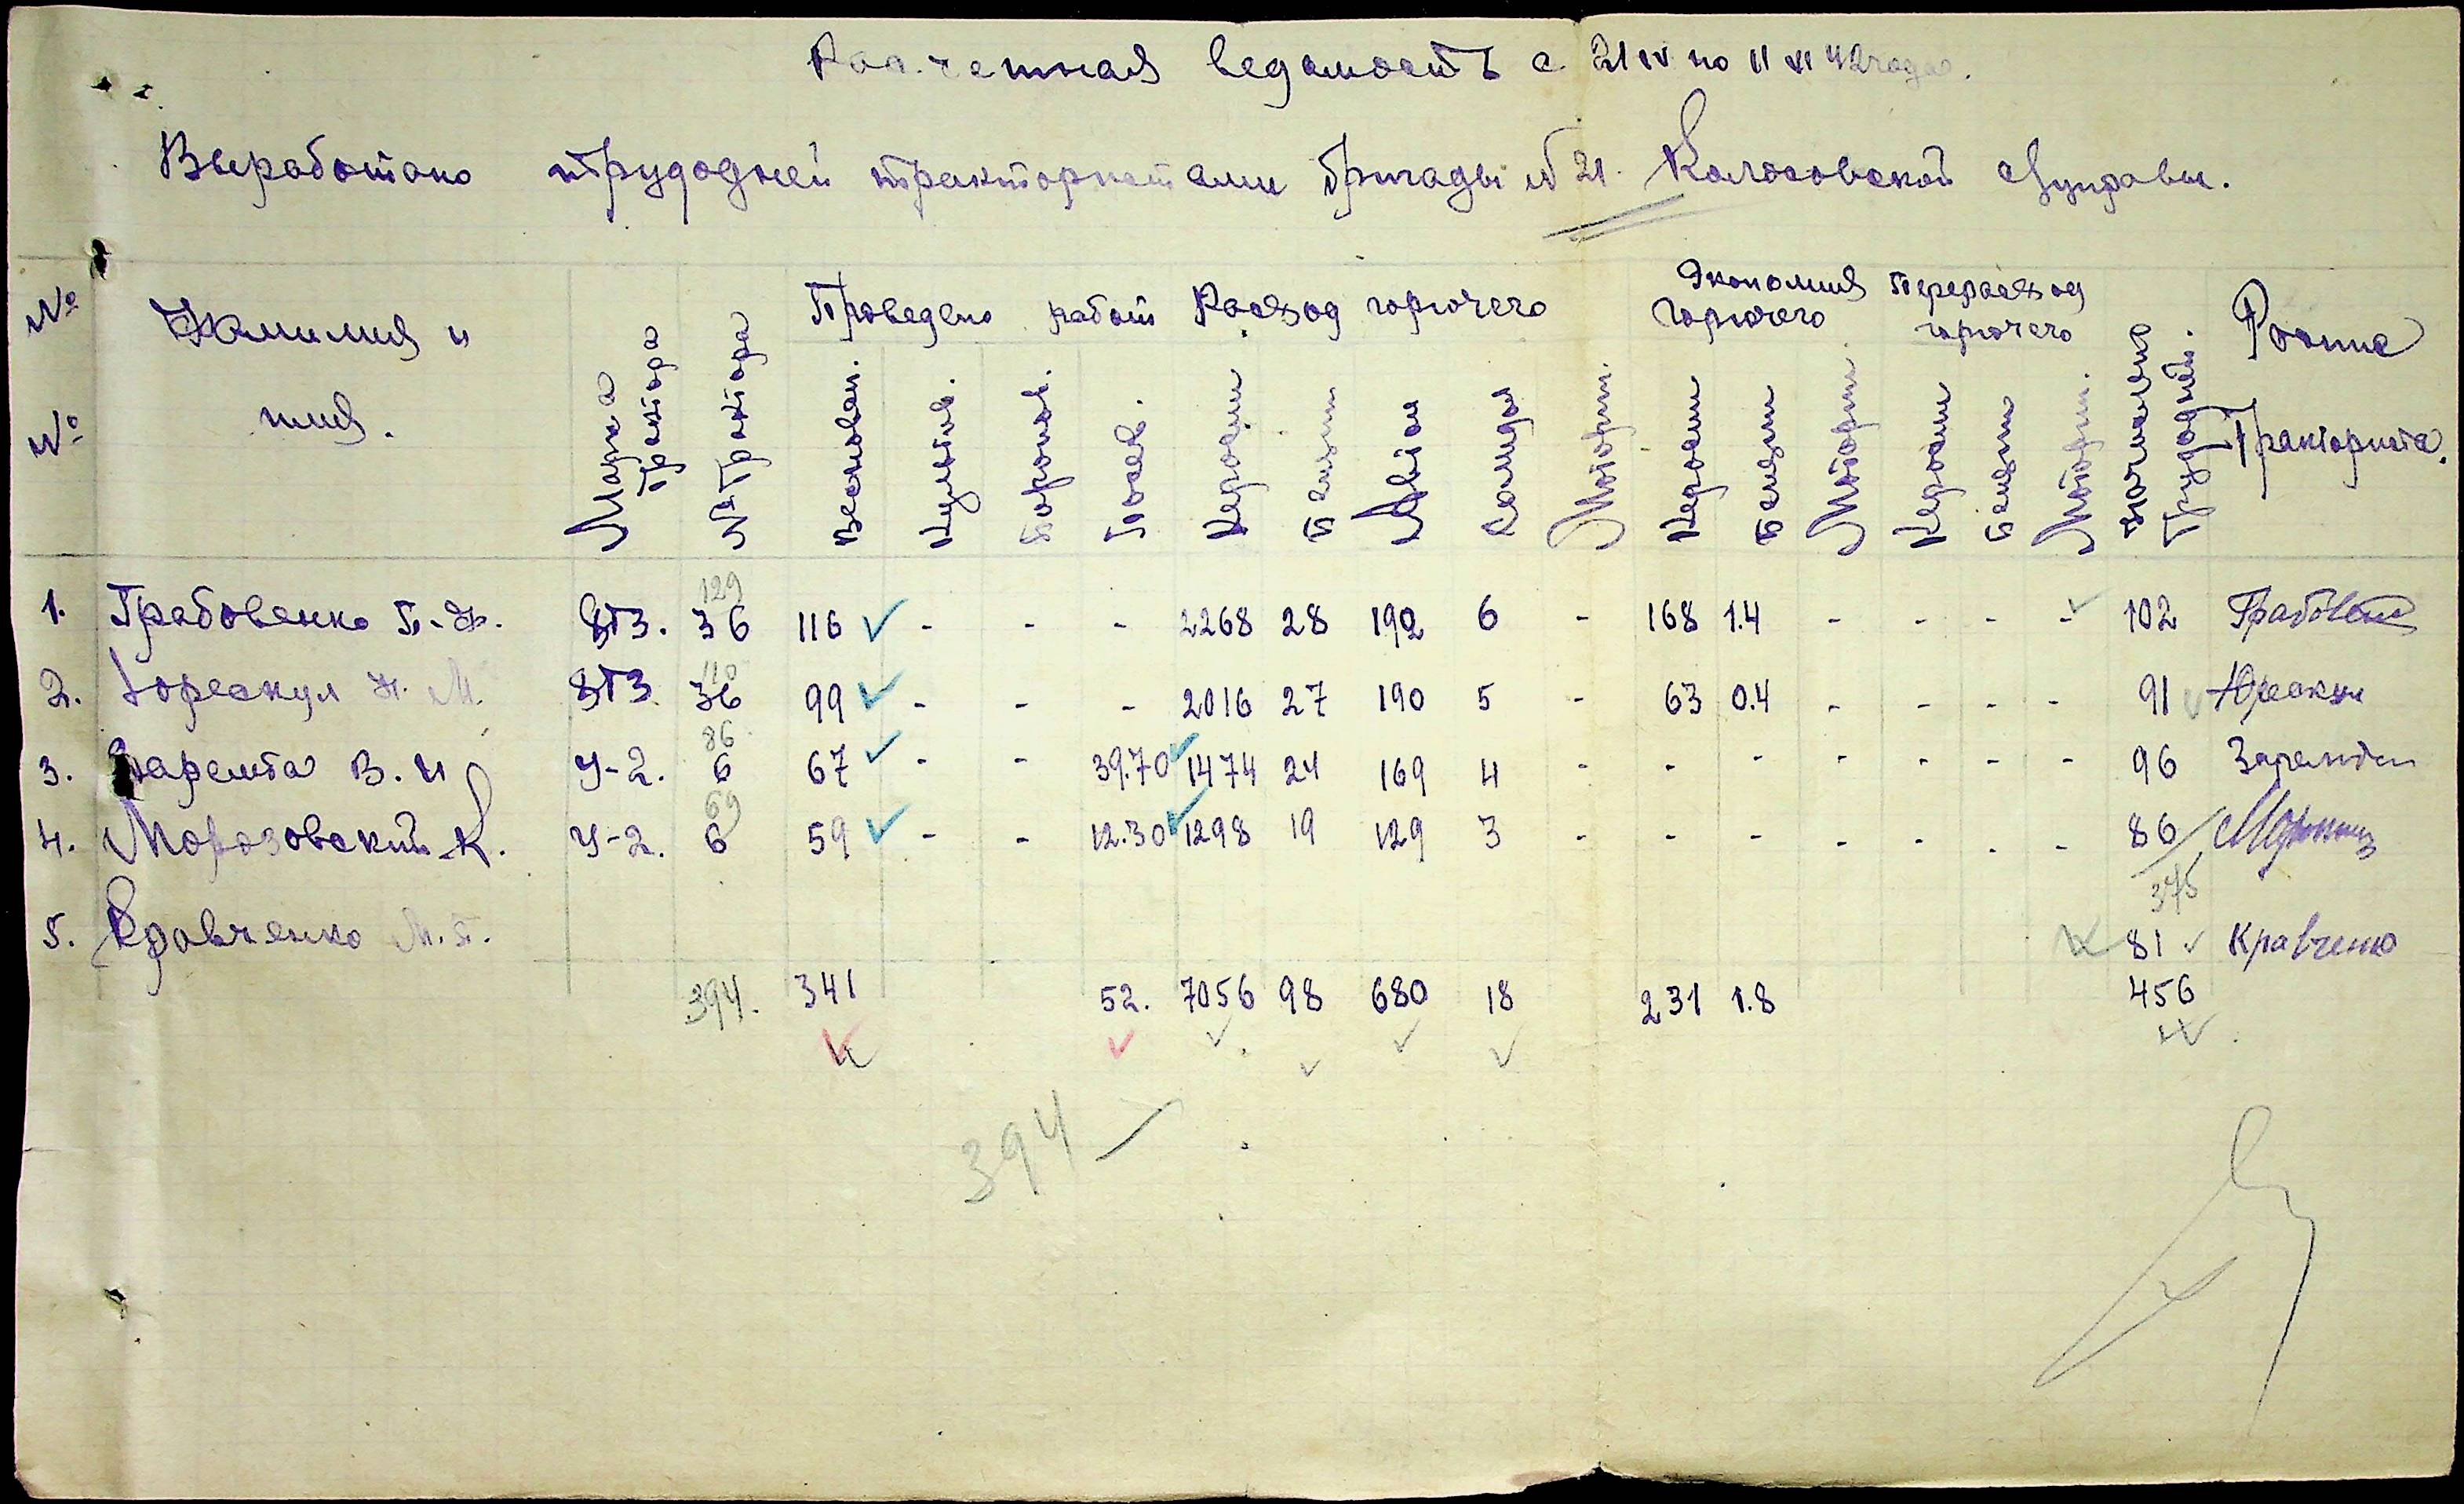 Расчетная ведомость с 21 IV по 11 VI 42 года.
Выработано трудодней трактористами бригады № 21. Колосовской с/управы.
№ № Фамилия и имя. Марка трактора № трактора Проведено работ Расход горючего Экономия горючего Перерасход горючего Трудодней. Роспис Тракториста.
Весновсп. Культив. Боронов. Посев. Керосин Бензин Автол Солидол Моторн. Керосин Бензин Моторн. Керосин Бензин Моторн.
129
1. Грабовенко П. Ф. ХТЗ. 36 116 ✓ - - - 2268 28 192 6 - 168 1.4 - - - - ✓ 102 Грабовен
110
2. Юрескул Н. М. ХТЗ 36 99 ✓ - - - 2016 27 190 5 - 63 0.4 - - - - 91 ✓ Юрескул
86
3. Заремба В. И У-2. 6 67 ✓ - - 39.70 ✓ 1474 24 169 4 - - - - - - - 96 Заремба
69
4. Морозовский К. У-2. 6 59 ✓ - - 12.30 ✓ 1298 19 129 3 - - - - - - - 86
375
5. Кравченко М. П. 81 ✓ Кравченко
394. 341 52. 7056 98 680 18 231 1.8 456
394